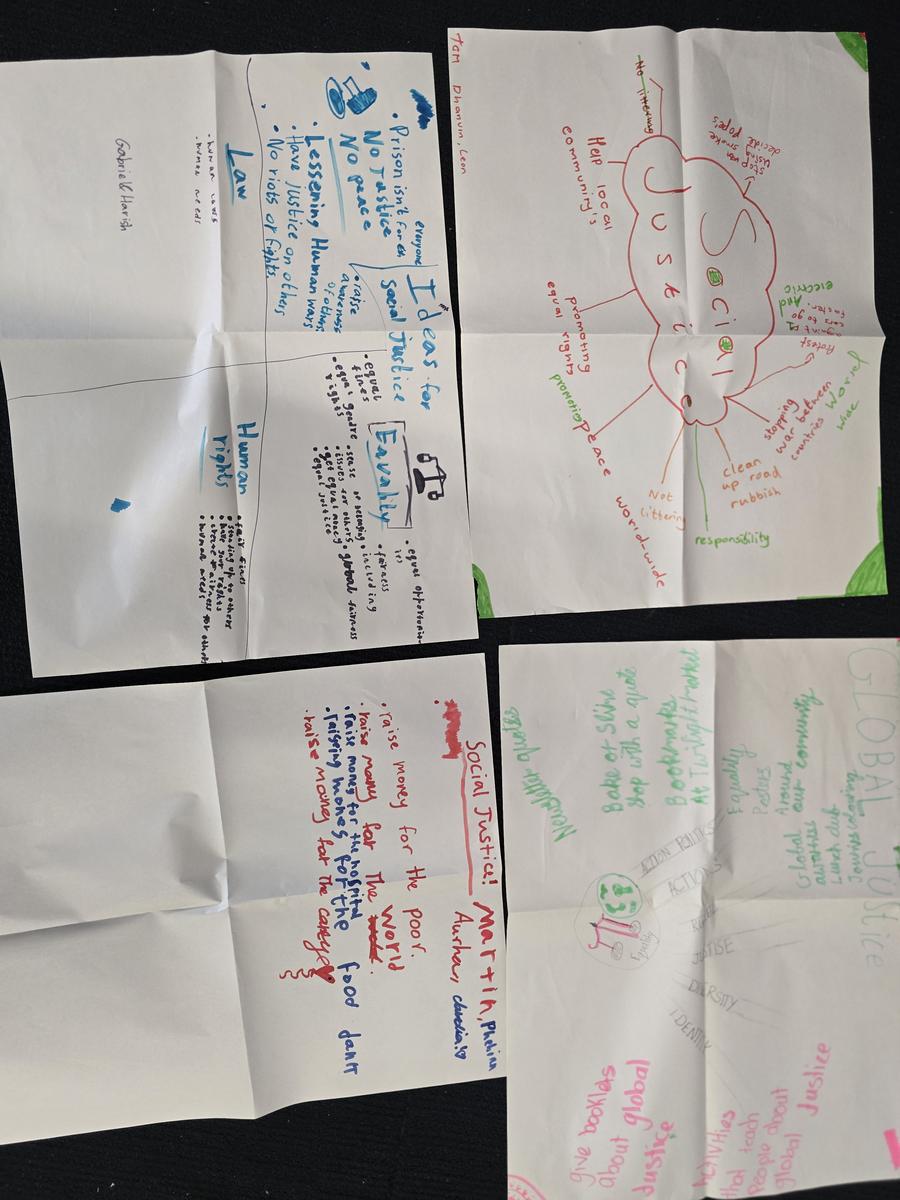 Ideas for
Social Justice
everyone
• Prison isn't for
No Justice
No peace
• Lessening Human wars
• Have justice on others
• No riots or fights
• raise
awareness
of others
Equality
• equal
fines
• equal gendre
rights
• equal opportunit-
ies
• fairness
• including
• global fairness
• sense of belonging
• issues for others
• get equal money
• equal justice
Law
• human laws
• human needs
Gabriel & Harish
Human
rights
• fair fines
• standing up to others
• have your rights
• create fairness for others
• human needs
Tam Dhanvin, Leon
Social
Justice
No littering
Help local
community's
promoting
equal rights
promoting peace world-wide
Not
littering
responsibility
clean
up road
rubbish
stopping
war between
countries
World
wide
Protest
against
to go
electric
Stop
using
smoke
decide pope's
Social Justice!
Martin,
Aurhan,
• raise money for the poor.
• raise many for the world.
• raise money for the hospital
• raisying money for the food bank
• raise money for the
GLOBAL JUSTICE
Around
our community
Global
Lunch club
Equality
Posters
Bookmarks
At Twilight market
Bake or
shop with a quote
Newsletter quotes
ACTION
ACTIONS
DIVERSITY
IDENTITY
give booklets
about global
Justice
Activities
that teach
People about
global Justice